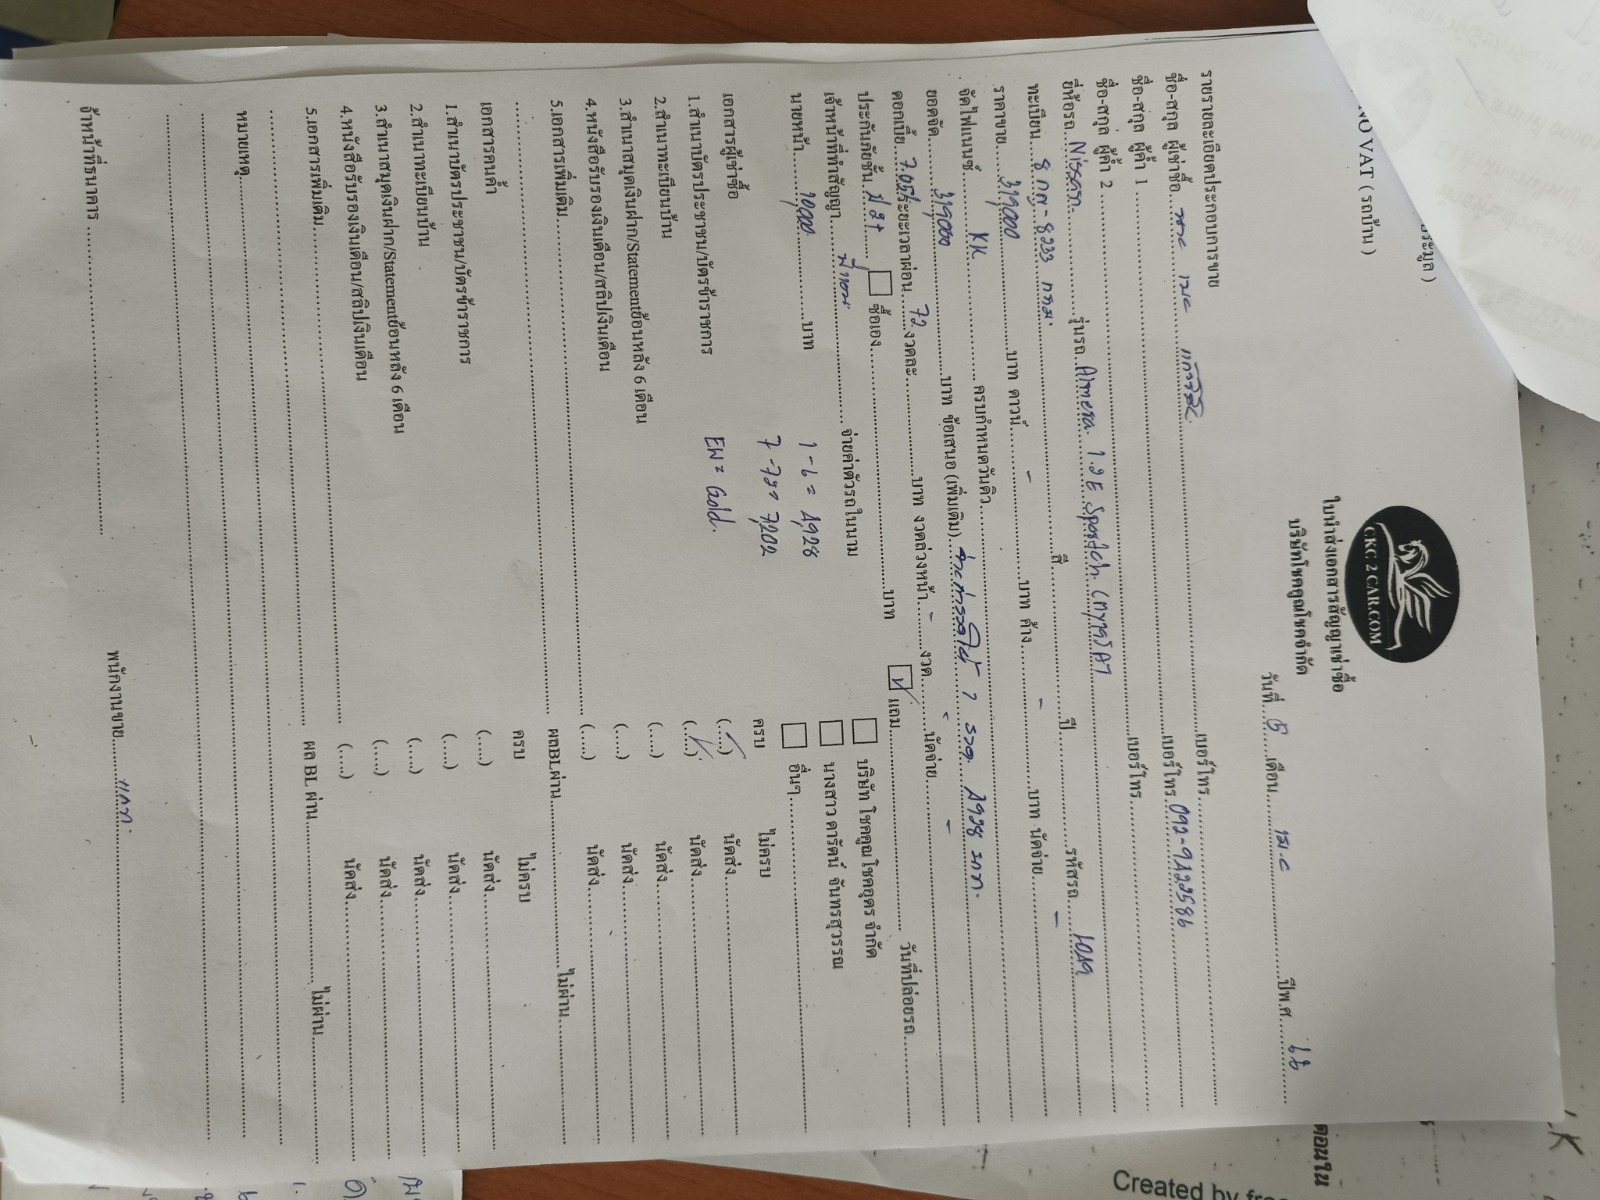 NO VAT ( รถบ้าน )
ระมูล )
CKC 2 CAR.COM
ใบนำส่งเอกสารสัญญาเช่าซื้อ
บริษัทโชคคูณโชคจำกัด
วันที่.....5.....เดือน.....เม.ย.....ปีพ.ศ.....66
รายรายละเอียดประกอบการขาย
ชื่อ-สกุล ผู้เช่าซื้อ..........เบอร์โทร..........
ชื่อ-สกุล ผู้ค้ำ 1..........เบอร์โทร 092-9422586
ชื่อ-สกุล ผู้ค้ำ 2..........เบอร์โทร..........
ยี่ห้อรถ...Nissan...รุ่นรถ...Almera 1.2 E Sportech
ทะเบียน...8 กญ-8233 กทม.....สี.....ปี.....รหัสรถ.....
ราคาขาย...319,000.....บาท ดาวน์.....-.....บาท ค้าง.....-.....บาท นัดจ่าย.....-
จัดไฟแนนซ์.....KK.....ครบกำหนดวันคิว..........
ยอดจัด.....319,000.....บาท ข้อเสนอ (เพิ่มเติม)..... 1 งวด 4,928 บาท.
ดอกเบี้ย...7.05%ระยะเวลาผ่อน...72.งวดละ..........บาท งวดล่วงหน้า...-...งวด...-...นัดจ่าย.....-
ประกันภัยชั้น...2+... ☐ ซื้อเอง..........บาท ☑ แถม..........วันที่ปล่อยรถ..........
เจ้าหน้าที่ทำสัญญา..........จ่ายค่าตัวรถในนาม ☐ บริษัท โชคคูณโชคยูคร จำกัด
นายหน้า.....10,000.....บาท ☐ นางสาว ดารัตน์ จันทรสุวรรณ
☐ อื่นๆ..........
1-6 = 4,928
7-72 = 7,202
EW = Gold.
เอกสารผู้เช่าซื้อ ครบ ไม่ครบ
1.สำเนาบัตรประชาชน/บัตรข้าราชการ (../..) นัดส่ง..........
2.สำเนาทะเบียนบ้าน (../..) นัดส่ง..........
3.สำเนาสมุดเงินฝาก/Statementย้อนหลัง 6 เดือน (....) นัดส่ง..........
4.หนังสือรับรองเงินเดือน/สลิปเงินเดือน (....) นัดส่ง..........
5.เอกสารเพิ่มเติม.......... (....) นัดส่ง..........
.......... ผลBLผ่าน..........ไม่ผ่าน..........
เอกสารคนค้ำ ครบ ไม่ครบ
1.สำเนาบัตรประชาชน/บัตรข้าราชการ (....) นัดส่ง..........
2.สำเนาทะเบียนบ้าน (....) นัดส่ง..........
3.สำเนาสมุดเงินฝาก/Statementย้อนหลัง 6 เดือน (....) นัดส่ง..........
4.หนังสือรับรองเงินเดือน/สลิปเงินเดือน (....) นัดส่ง..........
5.เอกสารเพิ่มเติม.......... (....) นัดส่ง..........
.......... ผล BL ผ่าน..........ไม่ผ่าน..........
หมายเหตุ..........
จ้าหน้าที่ธนาคาร .......... พนักงานขาย..........
Created by